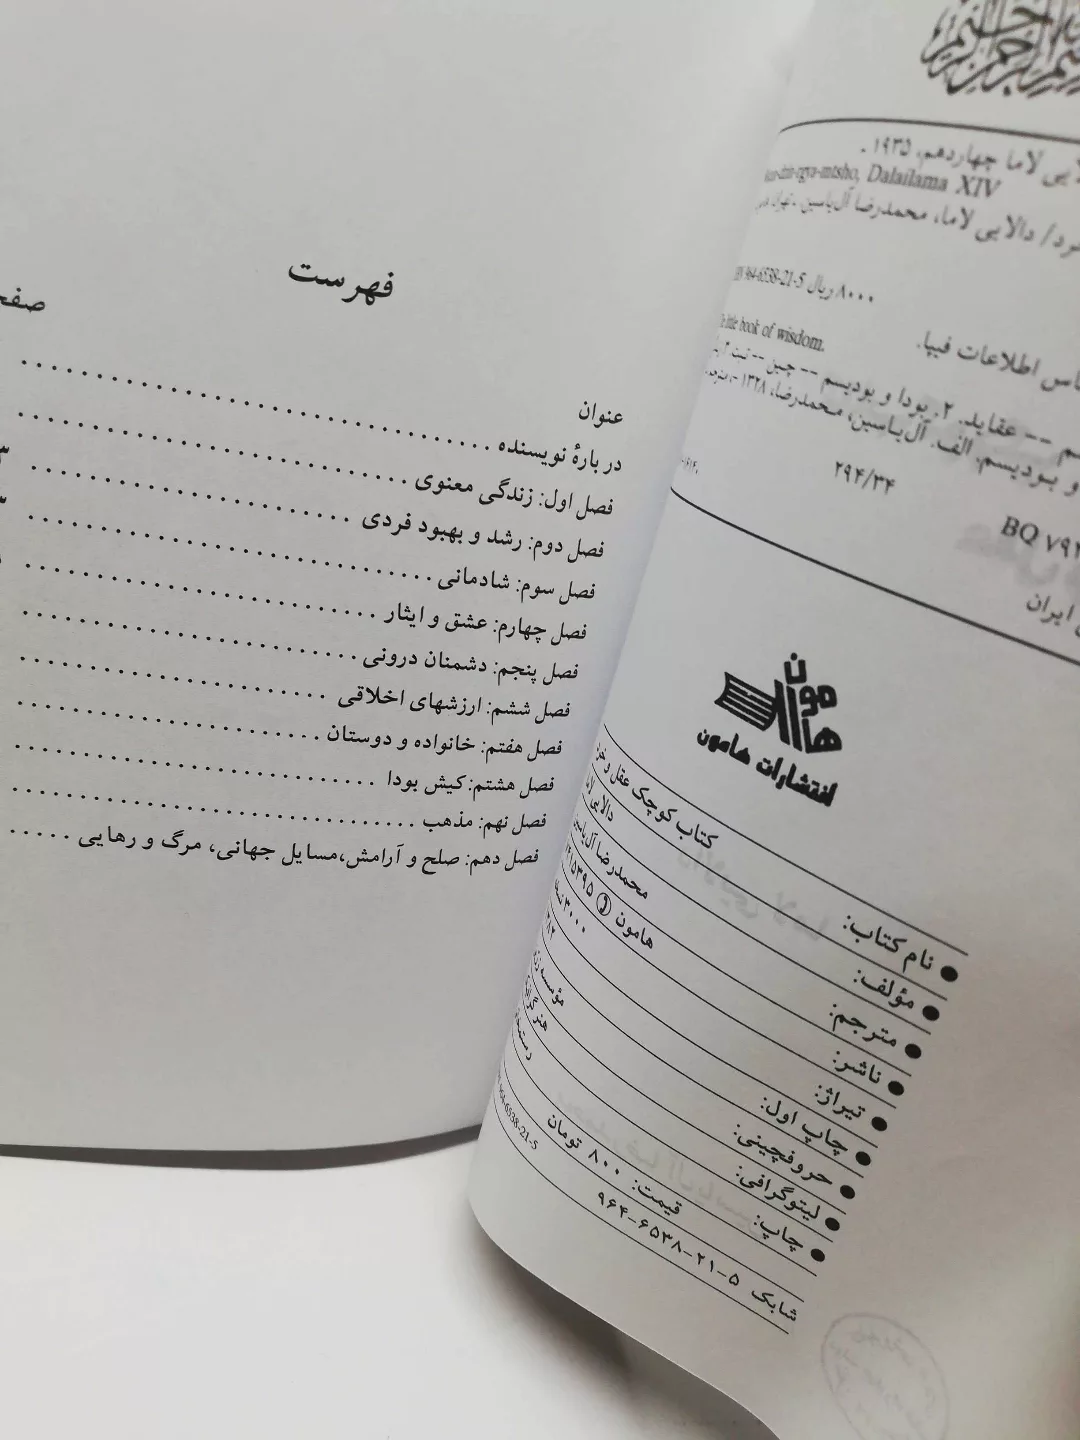 فهرست
عنوان
در بارهٔ نویسنده
فصل اول: زندگی معنوی
فصل دوم: رشد و بهبود فردی
فصل سوم: شادمانی
فصل چهارم: عشق و ایثار
فصل پنجم: دشمنان درونی
فصل ششم: ارزشهای اخلاقی
فصل هفتم: خانواده و دوستان
فصل هشتم: کیش بودا
فصل نهم: مذهب
فصل دهم: صلح و آرامش، مسایل جهانی، مرگ و رهایی
لاما چهاردهم، ۱۹۳۵ -
Dalailama XIV
دالایی لاما، محمدرضا آل‌یاسین. - تهران
964-6538-21-5 ۸۰۰۰ ریال
little book of wisdom.
اطلاعات فیپا.
-- عقاید. ۲. بودا و بودیسم -- چین --
و بودیسم. الف. آل‌یاسین، محمدرضا، ۱۳۲۸ -
۲۹۴/۳۴
BQ
ایران
هامون
انتشارات هامون
نام کتاب: کتاب کوچک عقل و
مؤلف: دالایی
مترجم: محمدرضا آل‌یاسین
ناشر: هامون
تیراژ: ۳۰۰۰
چاپ اول:
حروفچینی: مؤسسه
لیتوگرافی:
چاپ:
قیمت: ۸۰۰ تومان
شابک ۵-۲۱-۶۵۳۸-۹۶۴
964-6538-21-5